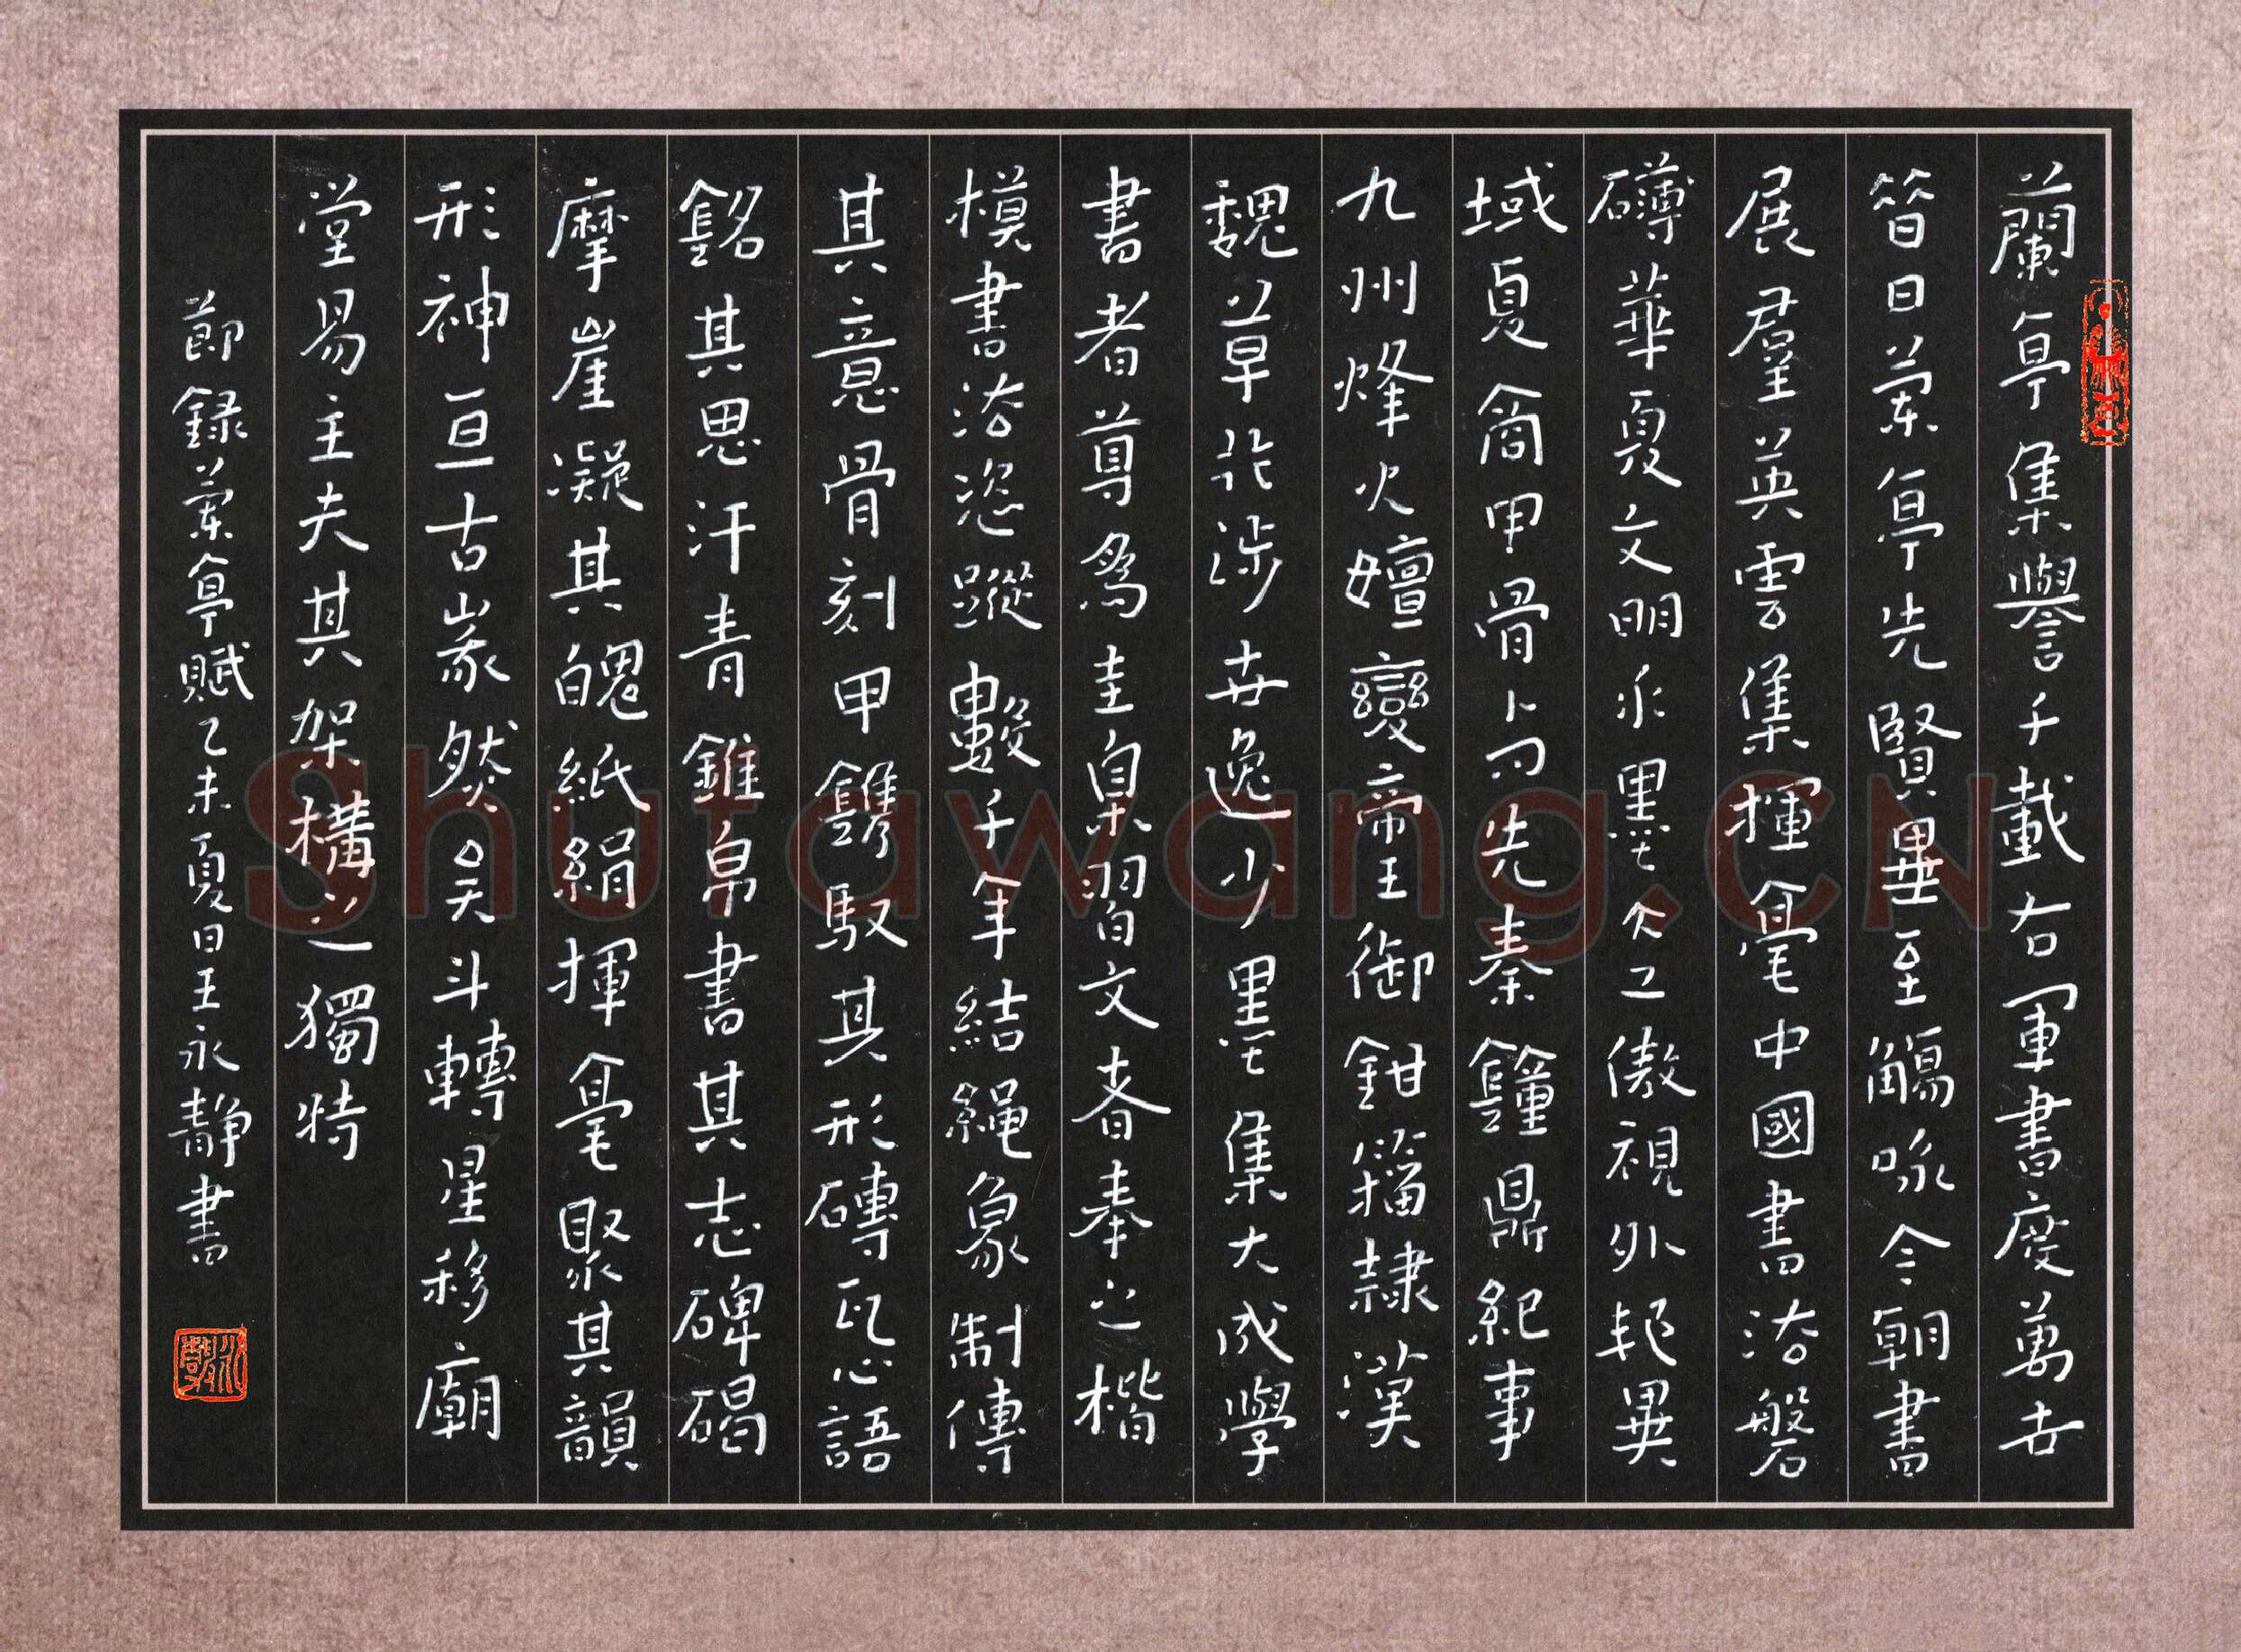 蘭亭集譽千載右軍書度萬世
昝日蘭亭先賢畢至觴咏今朝書
展羣英雲集揮毫中國書法磐
礴華夏文明永墨仌工傲視外邦異
域夏商甲骨卜問先秦鐘鼎紀事
九州烽火嬗變帝王御鉗籀隸漢
魏草行涉世逸少墨集大成學
書者尊為圭臬習文者奉之楷
模書法恣蹤數千年結繩象制傳
其意骨刻甲鐫馭其形磚瓦心語
銘其思汗青錐帛書其志碑碣
摩崖凝其魄紙絹揮毫聚其韻
形神亘古彖然吳斗轉星移廟
堂易主夫其架構之獨特
節録蘭亭賦乙未夏日王永靜書
Shufawang.CN